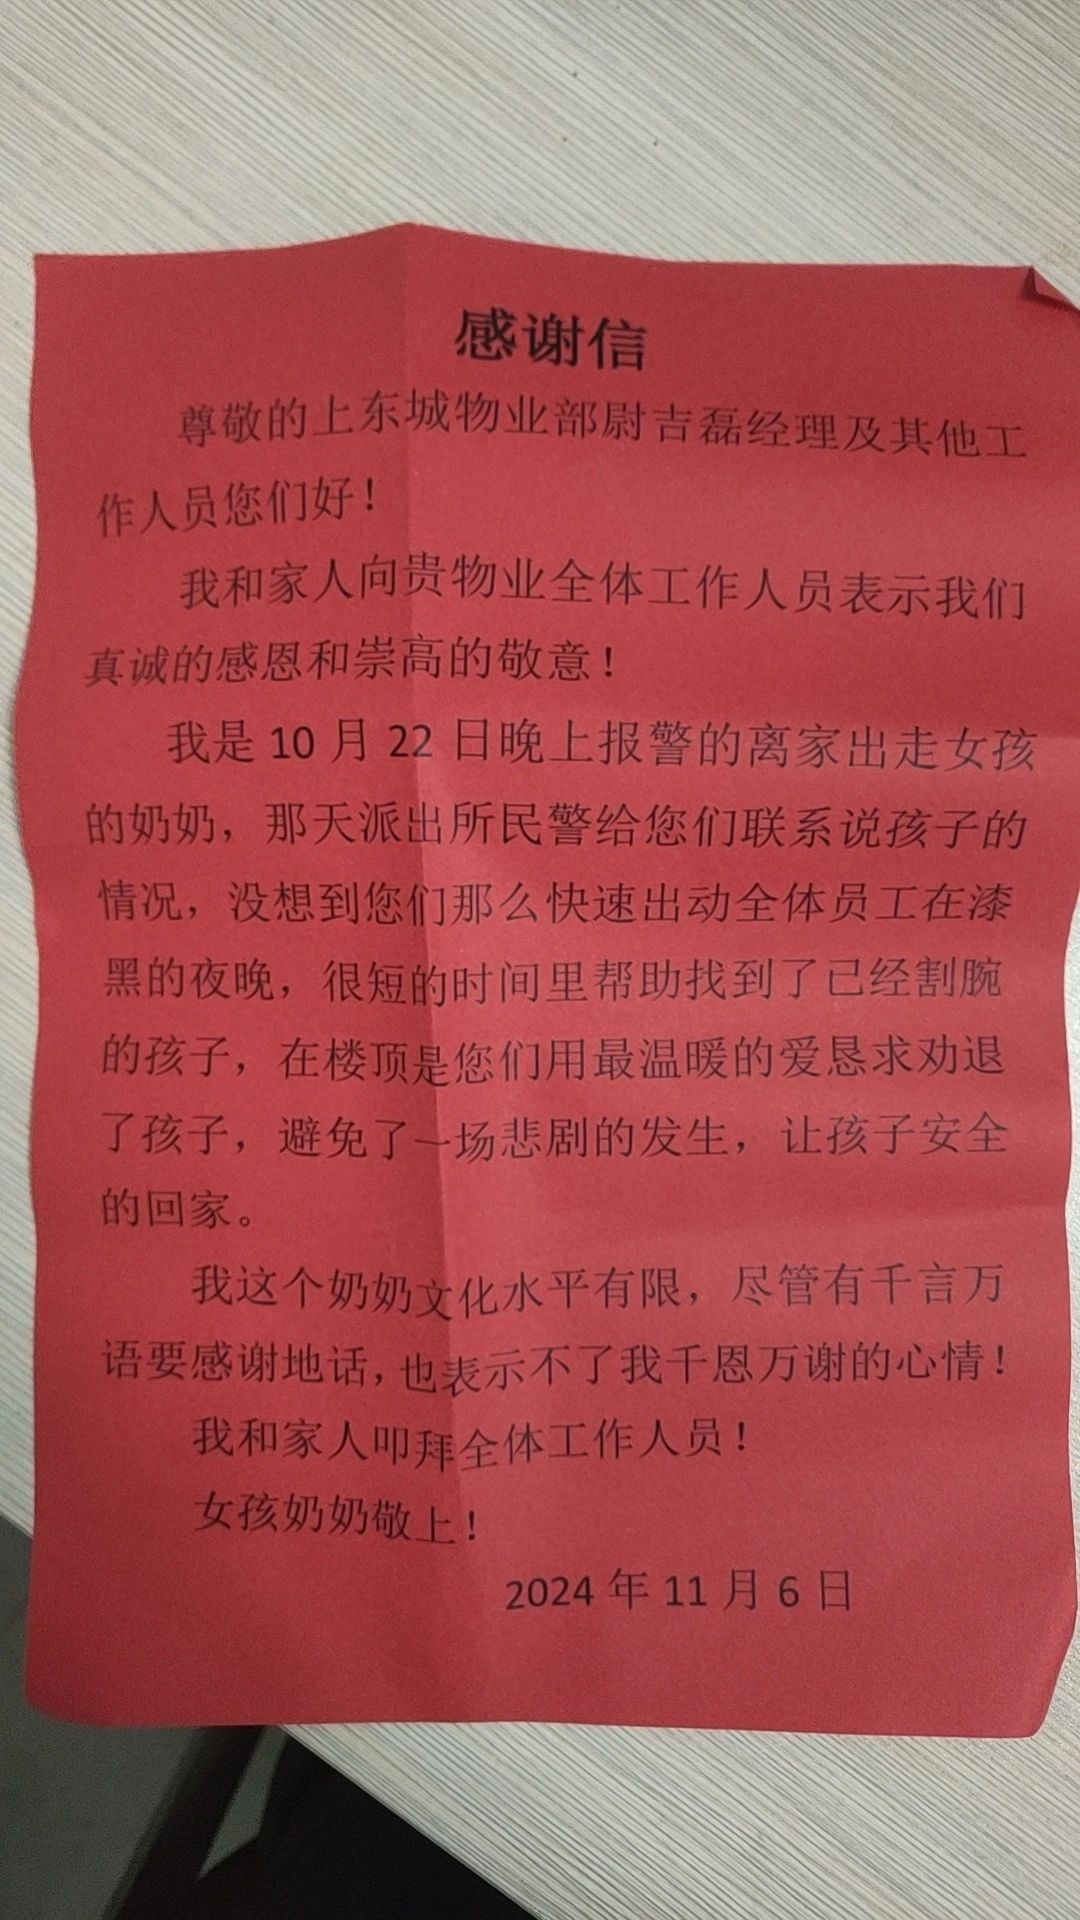 感谢信
尊敬的上东城物业部尉吉磊经理及其他工
作人员您们好！
我和家人向贵物业全体工作人员表示我们
真诚的感恩和崇高的敬意！
我是 10 月 22 日晚上报警的离家出走女孩
的奶奶，那天派出所民警给您们联系说孩子的
情况，没想到您们那么快速出动全体员工在漆
黑的夜晚，很短的时间里帮助找到了已经割腕
的孩子，在楼顶是您们用最温暖的爱恳求劝退
了孩子，避免了一场悲剧的发生，让孩子安全
的回家。
我这个奶奶文化水平有限，尽管有千言万
语要感谢地话，也表示不了我千恩万谢的心情！
我和家人叩拜全体工作人员！
女孩奶奶敬上！
2024 年 11 月 6 日